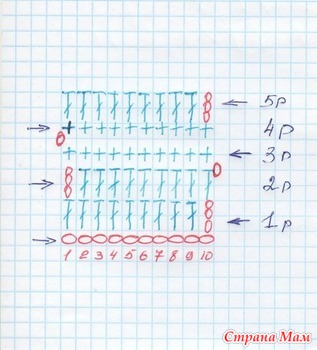 5р
4р
3р
2р
1р
1 2 3 4 5 6 7 8 9 10
Страна Мам